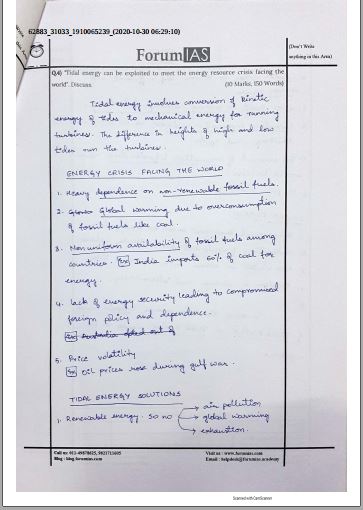 62883_31033_1910065239_(2020-10-30 06:29:10)
ForumIAS
(Don't Write
anything in this Area)
Q.4) "Tidal energy can be exploited to meet the energy resource crisis facing the
world". Discuss. (10 Marks, 150 Words)
Tidal energy involves conversion of kinetic
energy of tides to mechanical energy for running
turbines. The difference in heights of high and low
tides run the turbines.
ENERGY CRISIS FACING THE WORLD
1. Heavy dependence on non-renewable fossil fuels.
2. Global warming due to overconsumption
of fossil fuels like coal.
3. Non uniform availability of fossil fuels among
countries. Ex India imports 60% of coal for
energy.
4. lack of energy security leading to compromised
foreign policy and dependence.
Ex Australia opted out of
5. Price volatility
Ex Oil prices rose during gulf war.
TIDAL ENERGY SOLUTIONS
1. Renewable energy. So no → air pollution
→ global warming
→ exhaustion.
Call us: 011-49878625, 9821711605
Blog : blog.forumias.com
Visit us : www.forumias.com
Email : helpdesk@forumias.academy
Scanned with CamScanner